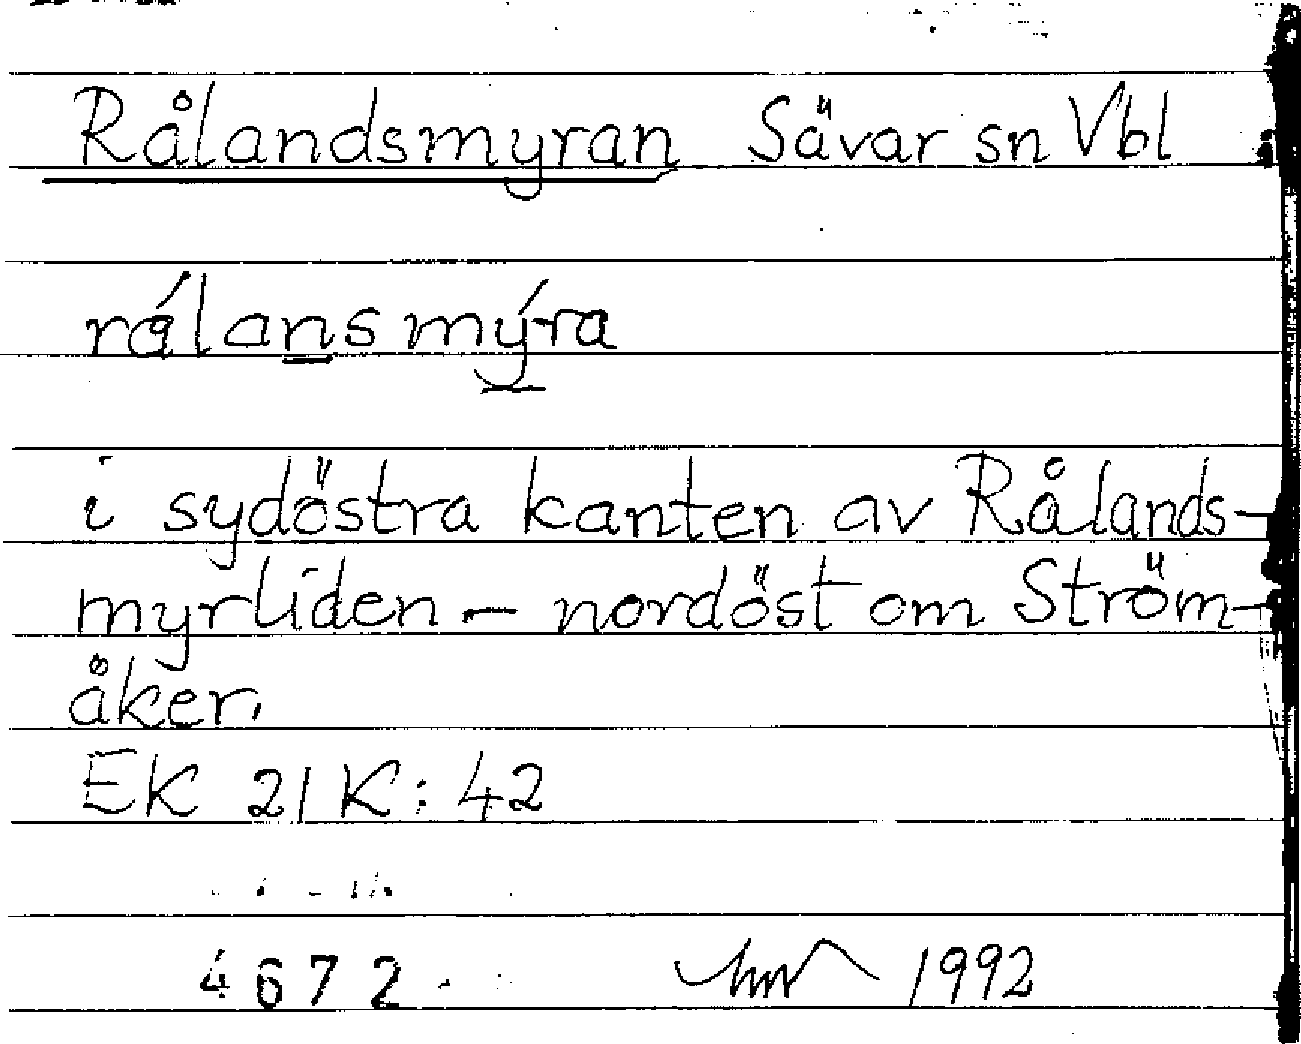 Rålandsmyran Sävar sn Vbl
rålansmýra
i sydöstra kanten av Rålands-
myrliden - nordöst om Ström-
åker.
EK 21K:42
4672
1992